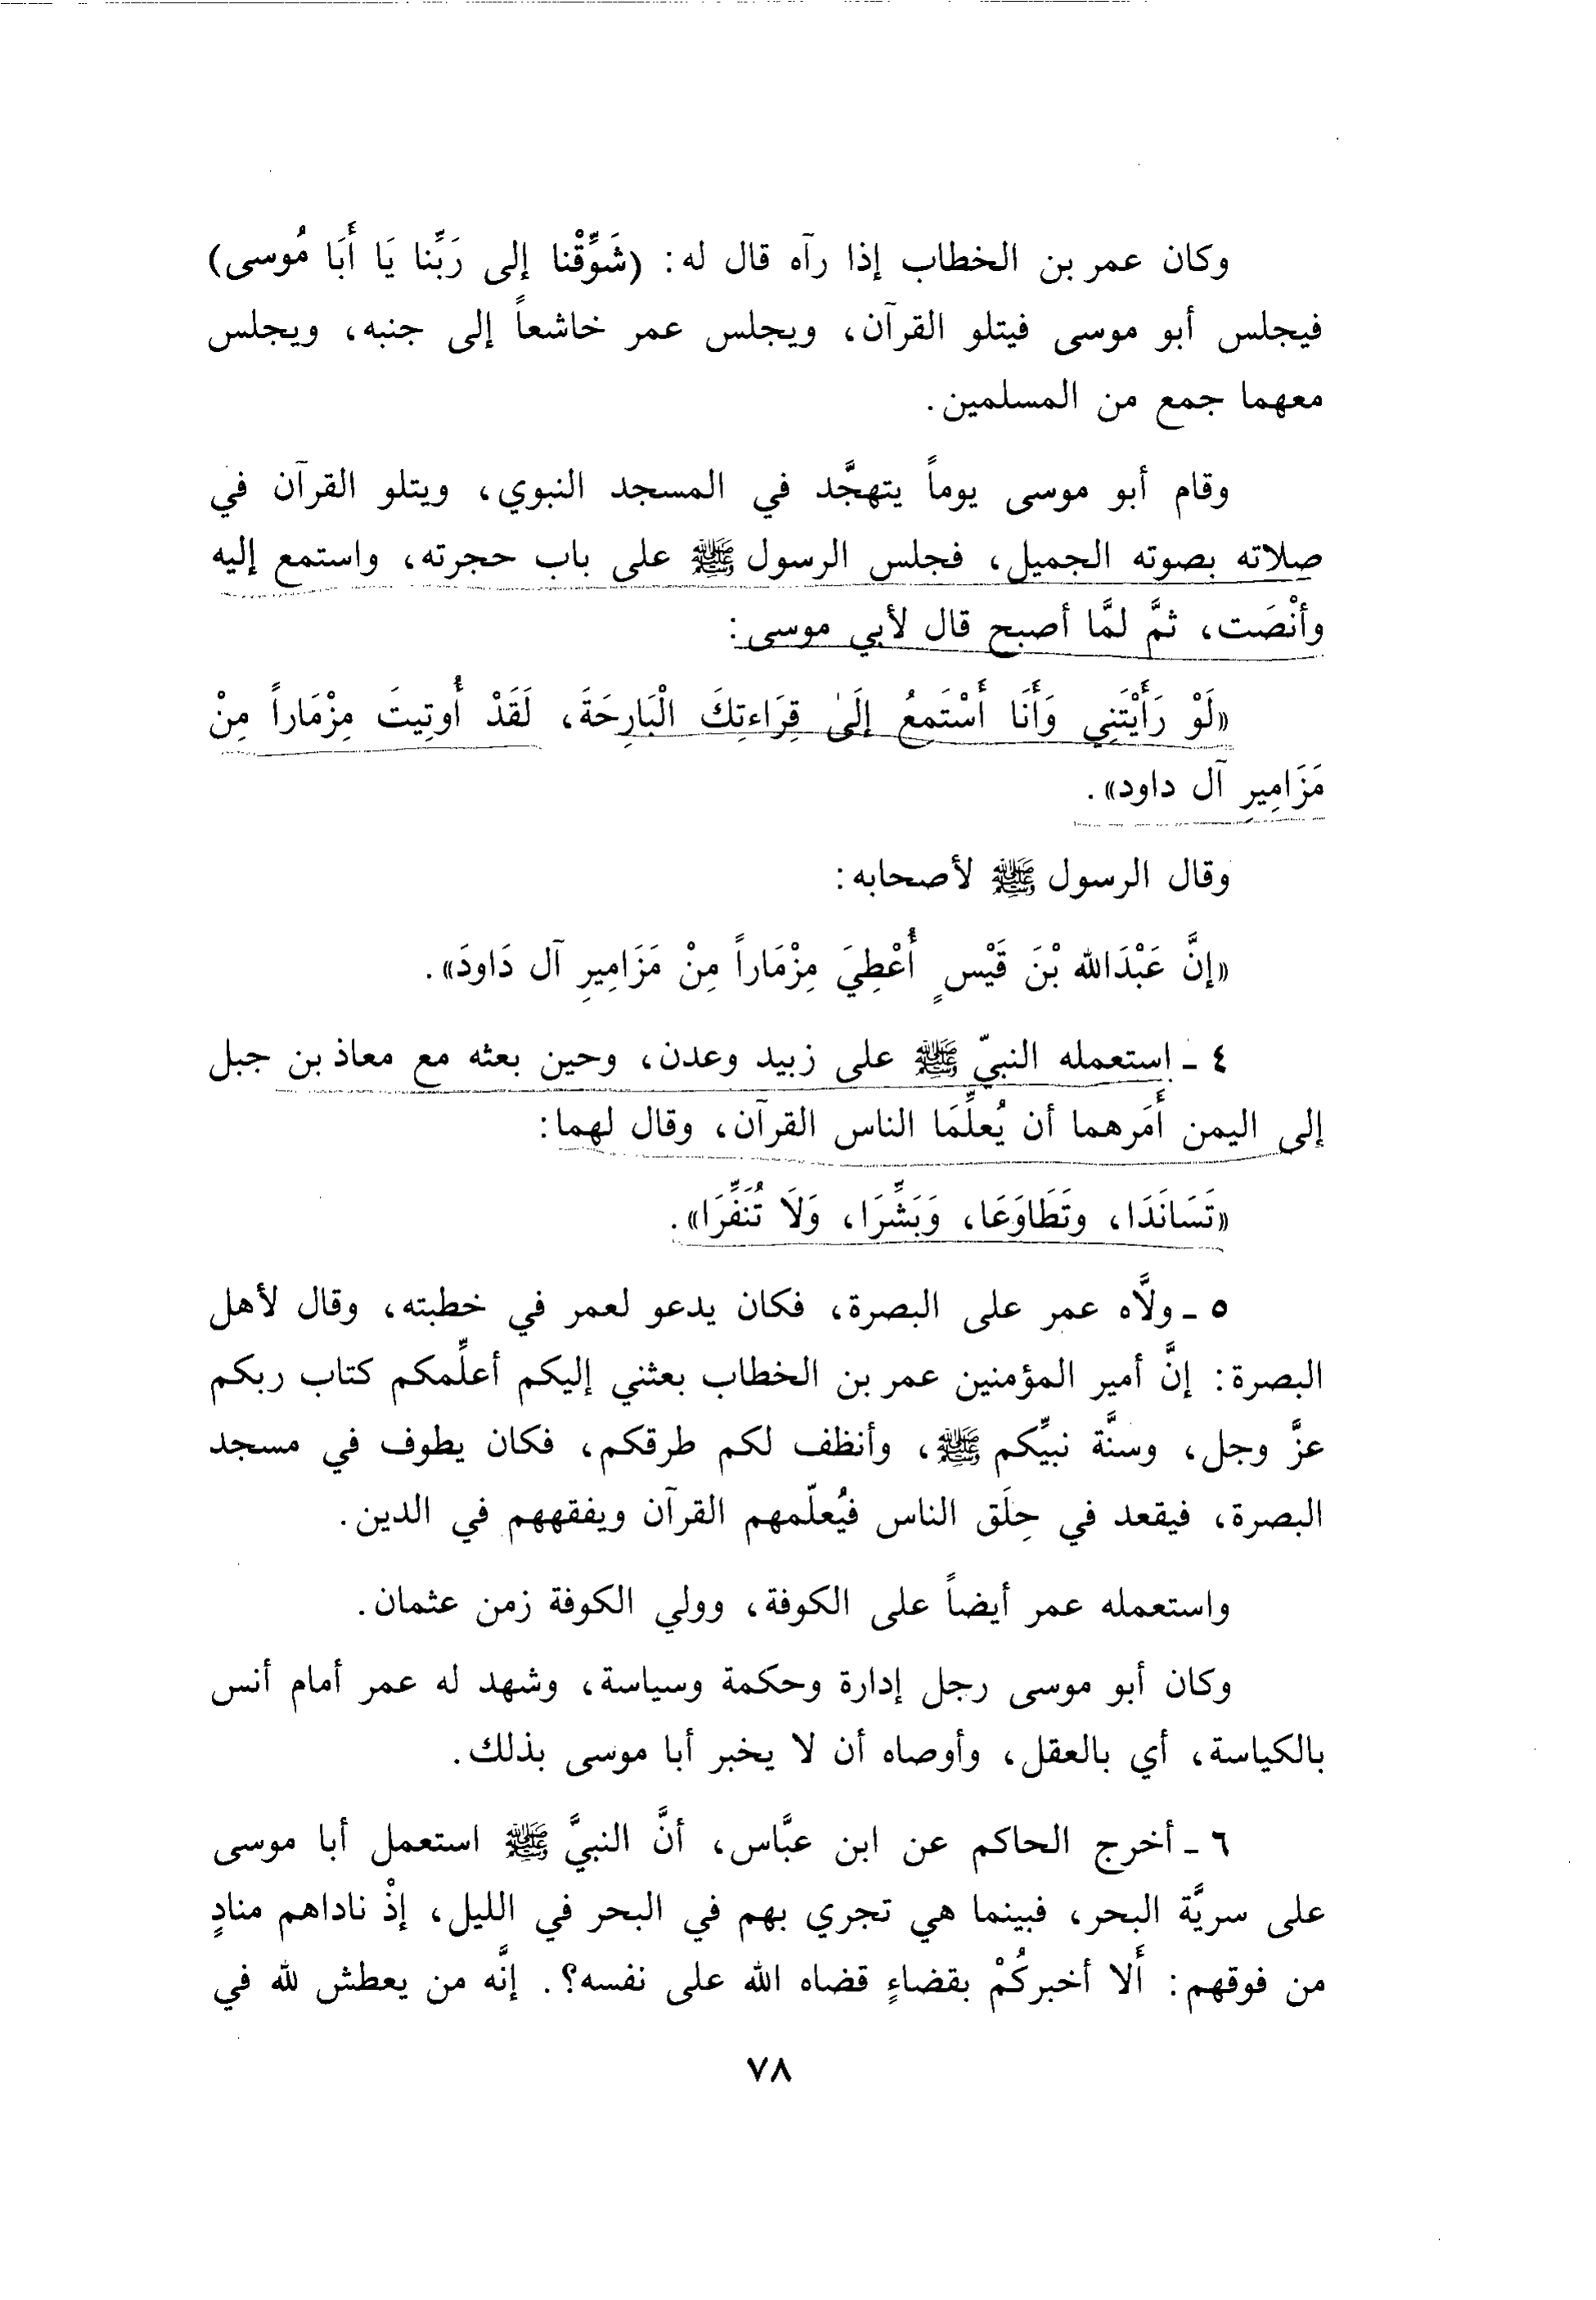 وكان عمر بن الخطاب إذا رآه قال له: (شَوِّقْنا إلى رَبِّنا يَا أَبَا مُوسى)
فيجلس أبو موسى فيتلو القرآن، ويجلس عمر خاشعاً إلى جنبه، ويجلس
معهما جمع من المسلمين.
وقام أبو موسى يوماً يتهجَّد في المسجد النبوي، ويتلو القرآن في
صلاته بصوته الجميل، فجلس الرسول ﷺ على باب حجرته، واستمع إليه
وأنْصَت، ثمَّ لمَّا أصبح قال لأبي موسى:
«لَوْ رَأَيْتَنِي وَأَنَا أَسْتَمِعُ إلَىٰ قِرَاءتِكَ الْبَارِحَةَ، لَقَدْ أُوتِيتَ مِزْمَاراً مِنْ
مَزَامِيرِ آل داود».
وقال الرسول ﷺ لأصحابه:
«إنَّ عَبْدَالله بْنَ قَيْسٍ أُعْطِيَ مِزْمَاراً مِنْ مَزَامِيرِ آل دَاودَ».
٤ - إستعمله النبيّ ﷺ على زبيد وعدن، وحين بعثه مع معاذ بن جبل
إلى اليمن أَمَرهما أن يُعلِّمَا الناس القرآن، وقال لهما:
«تَسَانَدَا، وتَطَاوَعَا، وَبَشِّرَا، وَلَا تُنَفِّرَا».
٥ - ولَّاه عمر على البصرة، فكان يدعو لعمر في خطبته، وقال لأهل
البصرة: إنَّ أمير المؤمنين عمر بن الخطاب بعثني إليكم أعلِّمكم كتاب ربكم
عزَّ وجل، وسنَّة نبيِّكم ﷺ، وأنظف لكم طرقكم، فكان يطوف في مسجد
البصرة، فيقعد في حِلَق الناس فيُعلّمهم القرآن ويفقههم في الدين.
واستعمله عمر أيضاً على الكوفة، وولي الكوفة زمن عثمان.
وكان أبو موسى رجل إدارة وحكمة وسياسة، وشهد له عمر أمام أنس
بالكياسة، أي بالعقل، وأوصاه أن لا يخبر أبا موسى بذلك.
٦ - أخرج الحاكم عن ابن عبَّاس، أنَّ النبيَّ ﷺ استعمل أبا موسى
على سريَّة البحر، فبينما هي تجري بهم في البحر في الليل، إذْ ناداهم منادٍ
من فوقهم: أَلا أخبركُمْ بقضاءٍ قضاه الله على نفسه؟. إنَّه من يعطش لله في
٧٨